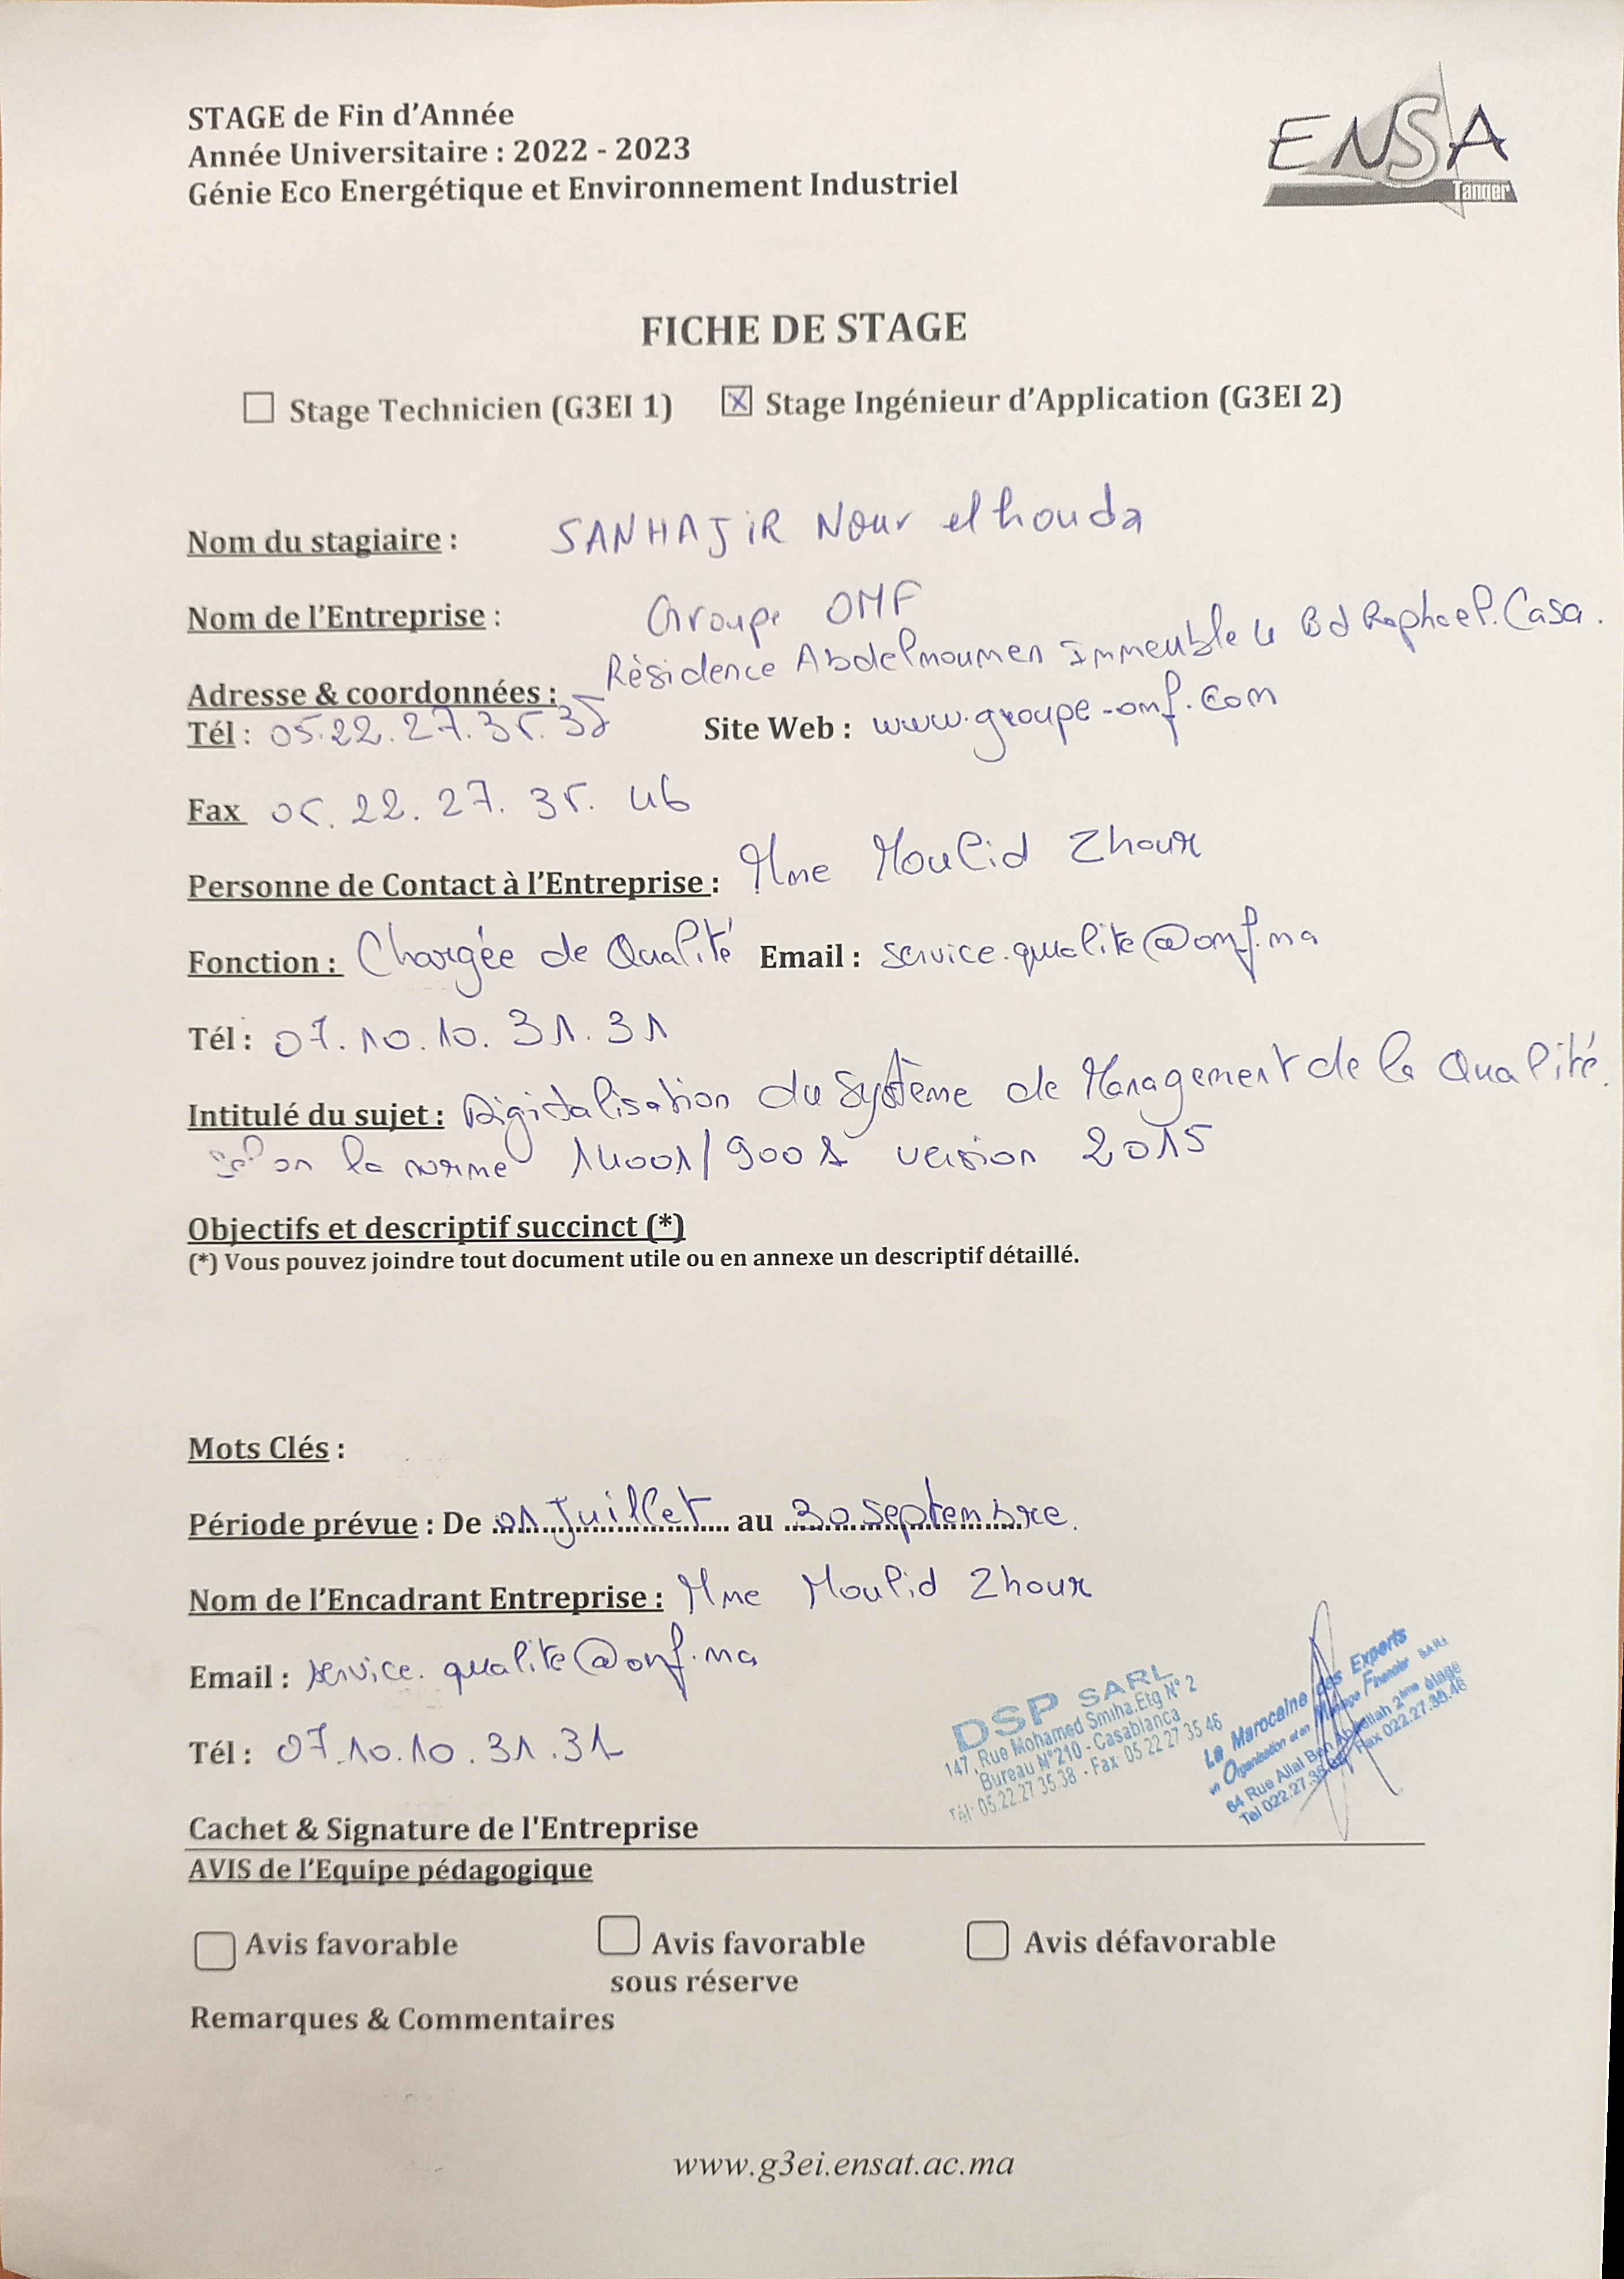 STAGE de Fin d'Année
Année Universitaire : 2022 - 2023
Génie Eco Energétique et Environnement Industriel
ENSA
Tanger
FICHE DE STAGE
Stage Technicien (G3EI 1) X Stage Ingénieur d'Application (G3EI 2)
Nom du stagiaire : SANHAJIR Nour elhouda
Nom de l'Entreprise : Groupe OMF
Adresse & coordonnées : Résidence Abdelmoumen Immeuble 4 Bd Raphael. Casa.
Tél : 05.22.27.35.35 Site Web : www.groupe-omf.com
Fax 05.22.27.35.46
Personne de Contact à l'Entreprise : Mme Moulid Zhour
Fonction : Chargée de Qualité Email : service.qualite@omf.ma
Tél : 07.10.10.31.31
Intitulé du sujet : Digitalisation du Système de Management de la Qualité
selon la norme 14001/9001 version 2015
Objectifs et descriptif succinct (*)
(*) Vous pouvez joindre tout document utile ou en annexe un descriptif détaillé.
Mots Clés :
Période prévue : De 01 Juillet au 30 Septembre.
Nom de l'Encadrant Entreprise : Mme Moulid Zhour
Email : service.qualite@omf.ma
Tél : 07.10.10.31.31
DSP SARL
147, Rue Mohamed Smiha.Etg N° 2
Bureau N°210 - Casablanca
Tél: 05.22.27 35.38 - Fax: 05 22 27 35 46
La Marocaine des Experts
en Organisation et en Financier SARL
64 Rue Allal Ben Abdellah 2ème étage
Tel 022.27.35. Fax 022.27.35.46
Cachet & Signature de l'Entreprise
AVIS de l'Equipe pédagogique
Avis favorable Avis favorable sous réserve Avis défavorable
Remarques & Commentaires
www.g3ei.ensat.ac.ma